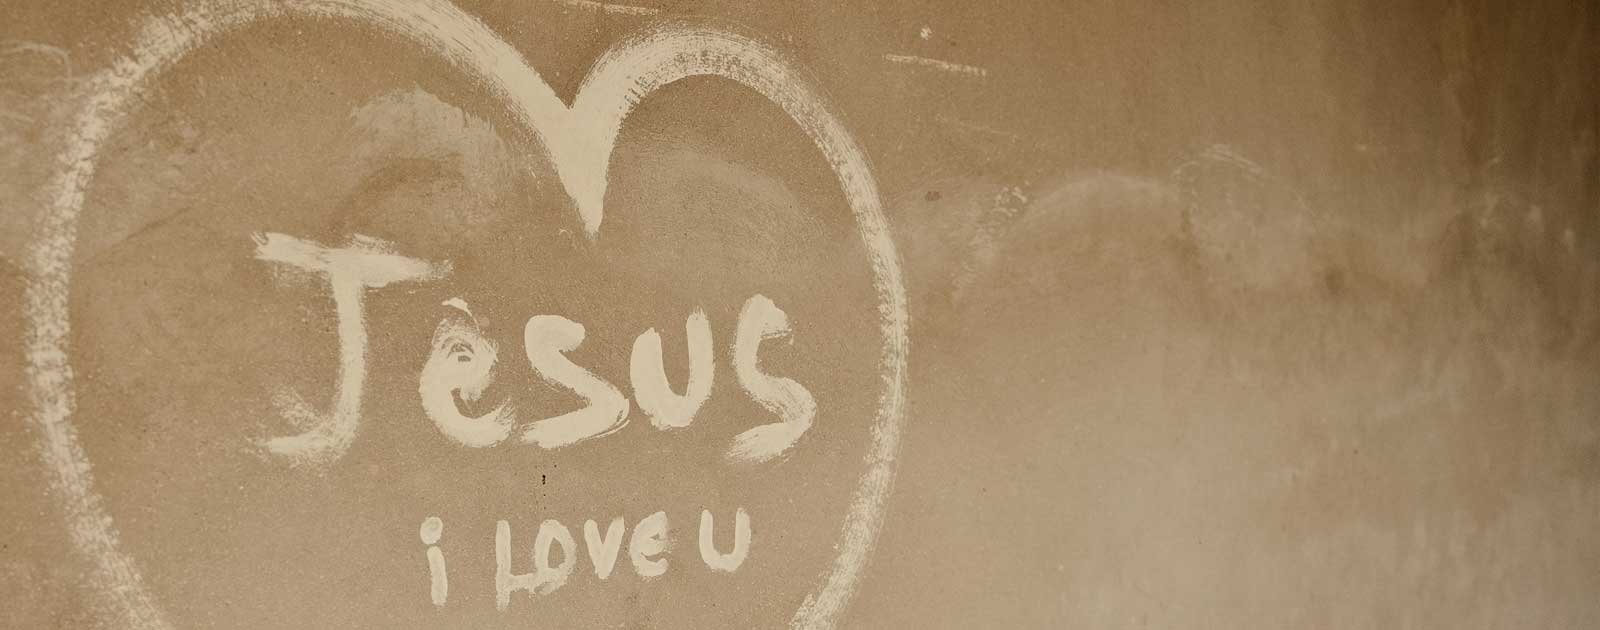 Jesus
i Love u